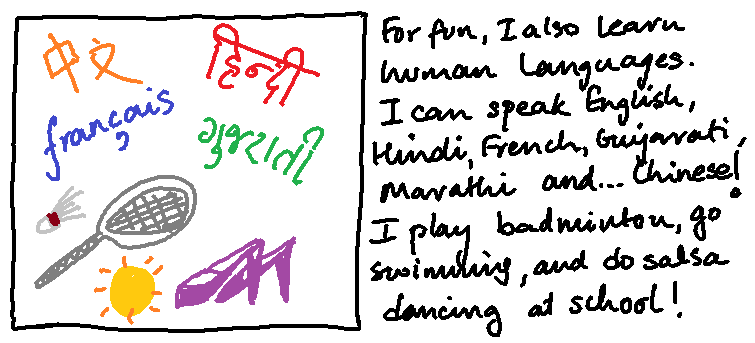 中文
हिन्दी
français
ગુજરાતી
For fun, I also learn
human languages.
I can speak English,
Hindi, French, Gujarati,
Marathi and... Chinese!
I play badminton, go
swimming, and do salsa
dancing at school!